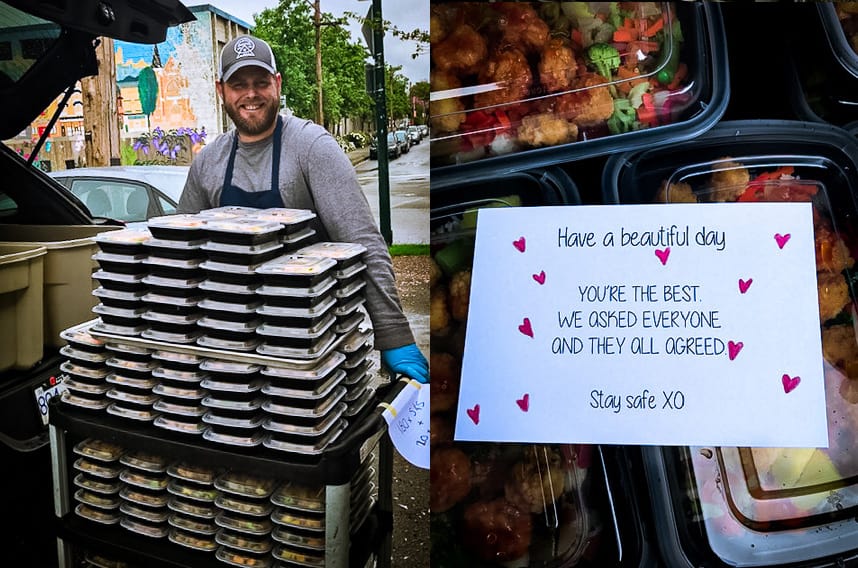 Have a beautiful day
YOU'RE THE BEST.
WE ASKED EVERYONE
AND THEY ALL AGREED.
Stay safe XO